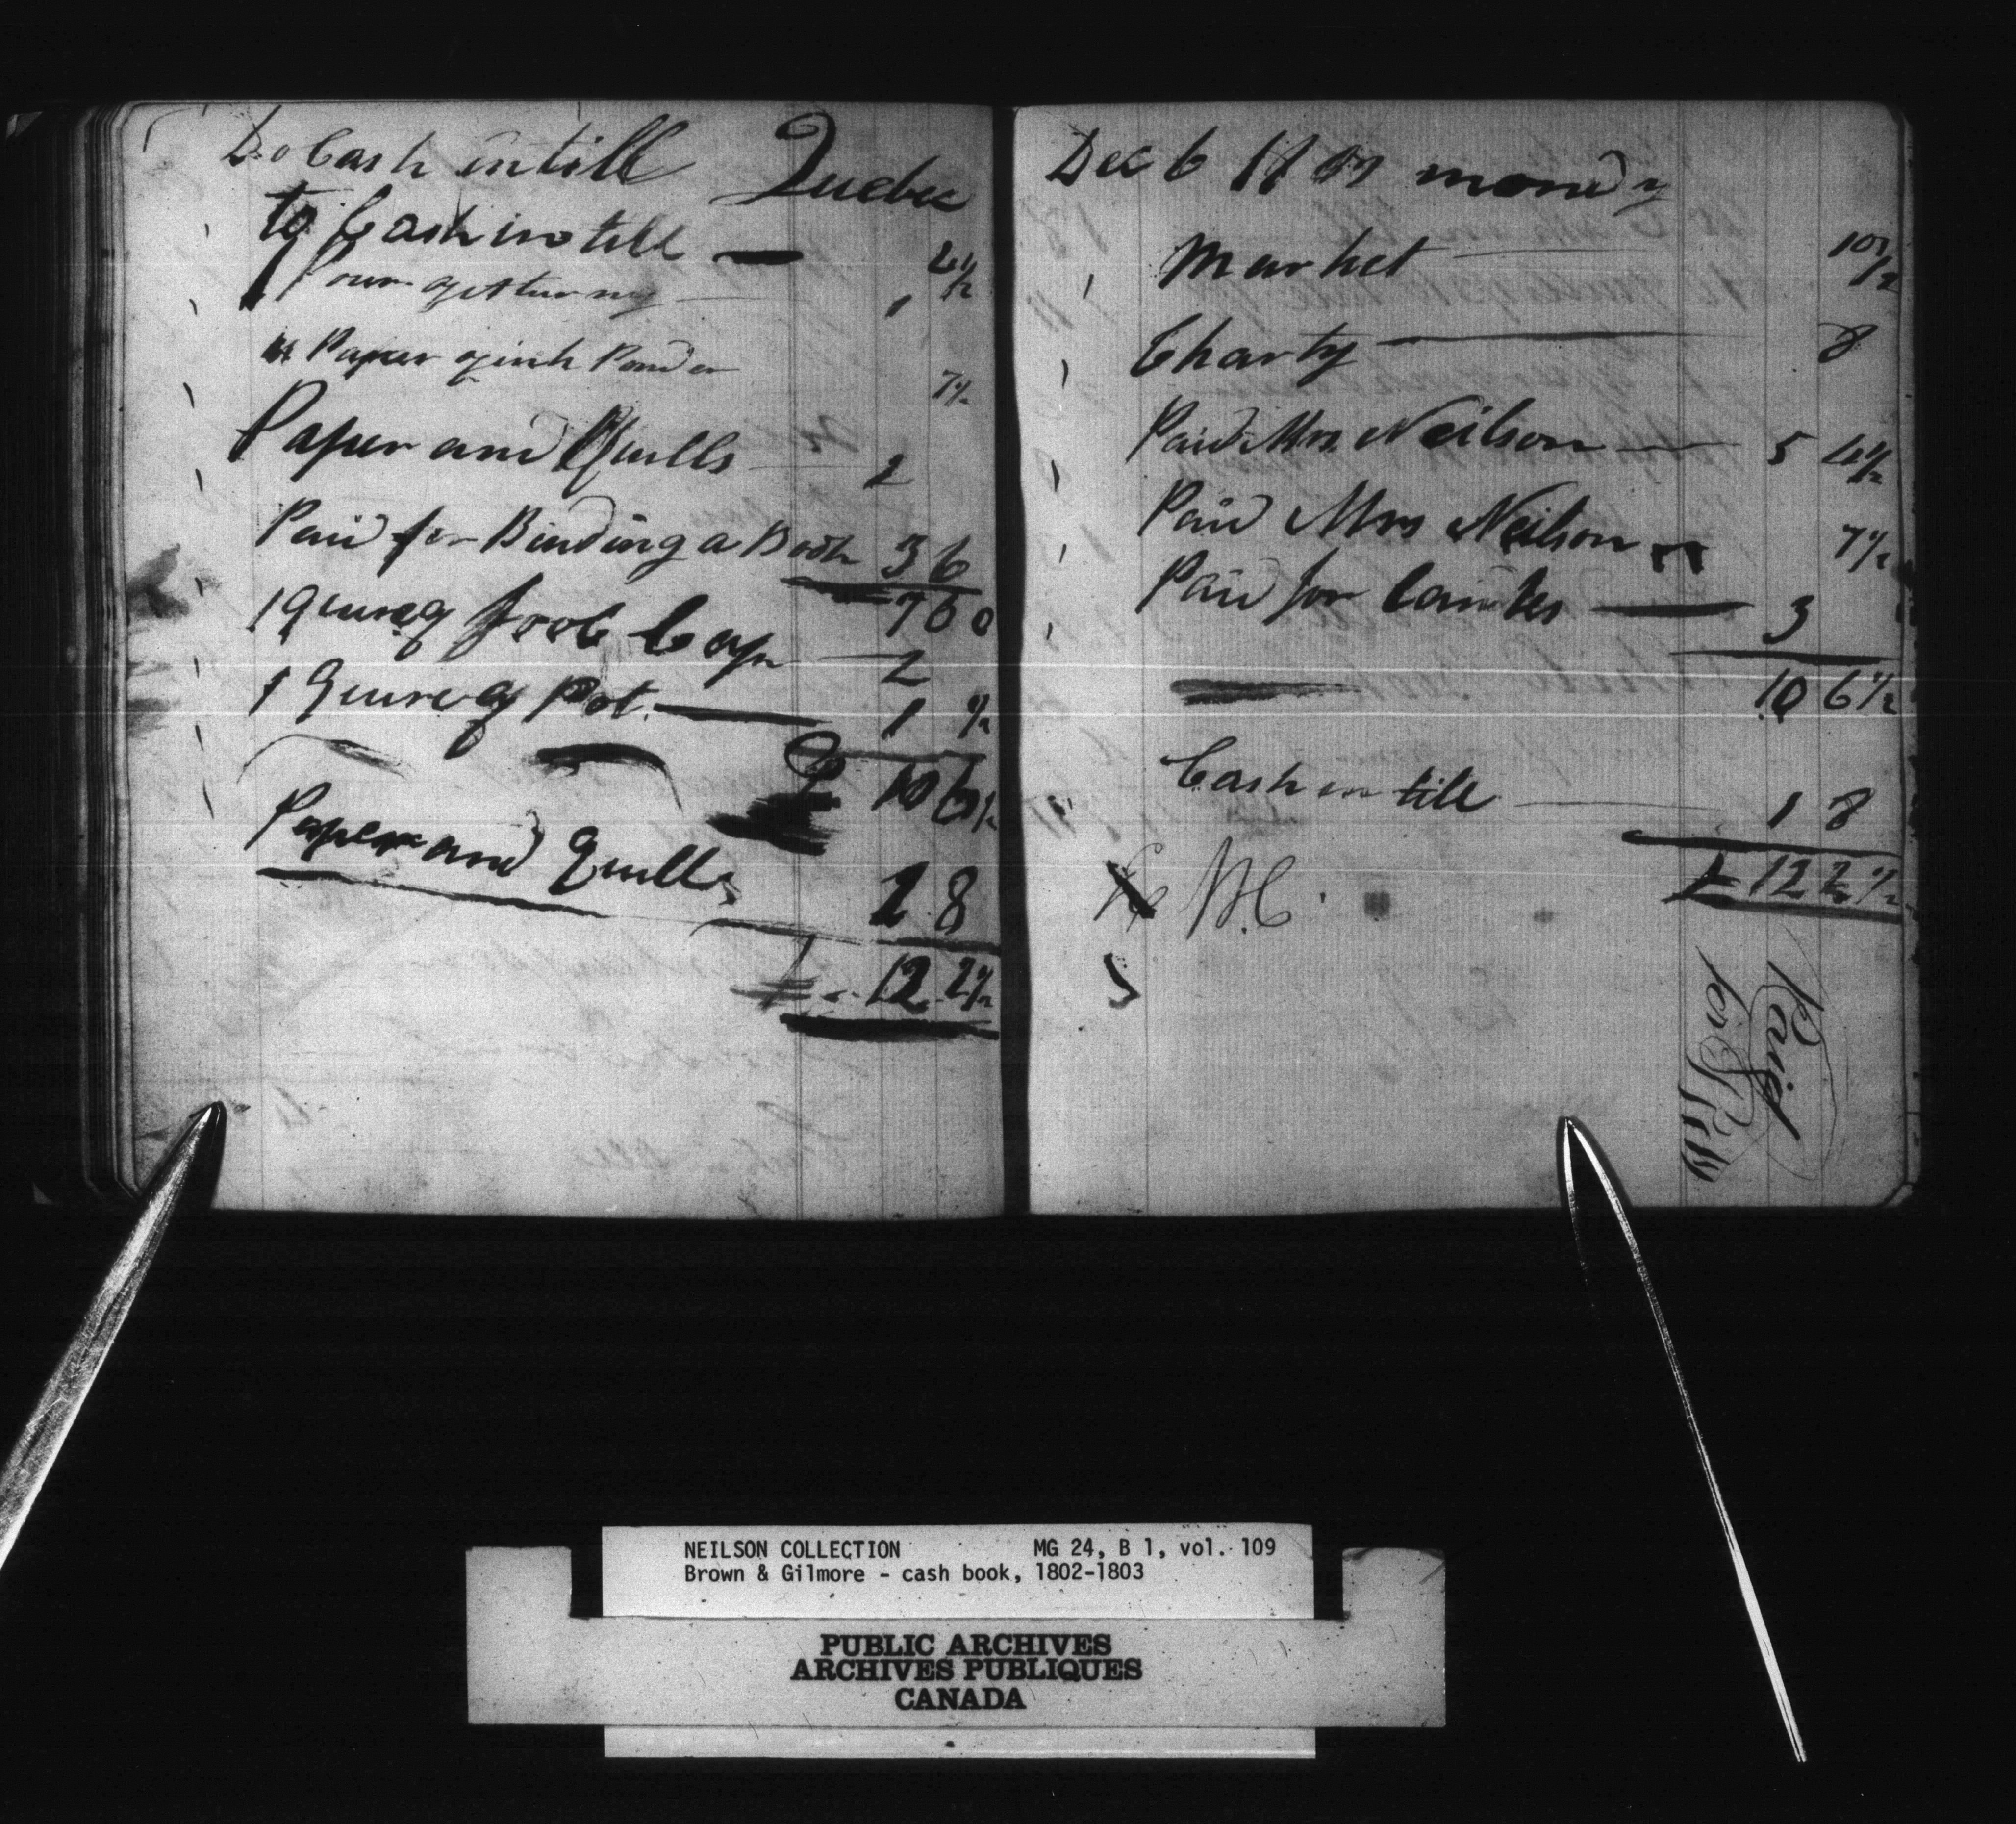 Do Cash in till Quebec
to Cash in till — 4½
1
Paper of ink Powder 7½
Paper and Quills 2
Paid for Binding a Book 3 6
7 6 0
1 Quire of fools Cap 2
1 Quire of Pot. — 1 ½
10 6½
Paper and Quills 1 8
12 2½
Dec 6 monday
Market 10½
Charty 8
Paid Mrs. Neilson — 5 4½
Paid Mrs Neilson 7½
Paid for — 3
10 6½
Cash in till 1 8
12 2½
Paid
NEILSON COLLECTION MG 24, B 1, vol. 109
Brown & Gilmore - cash book, 1802-1803
PUBLIC ARCHIVES
ARCHIVES PUBLIQUES
CANADA